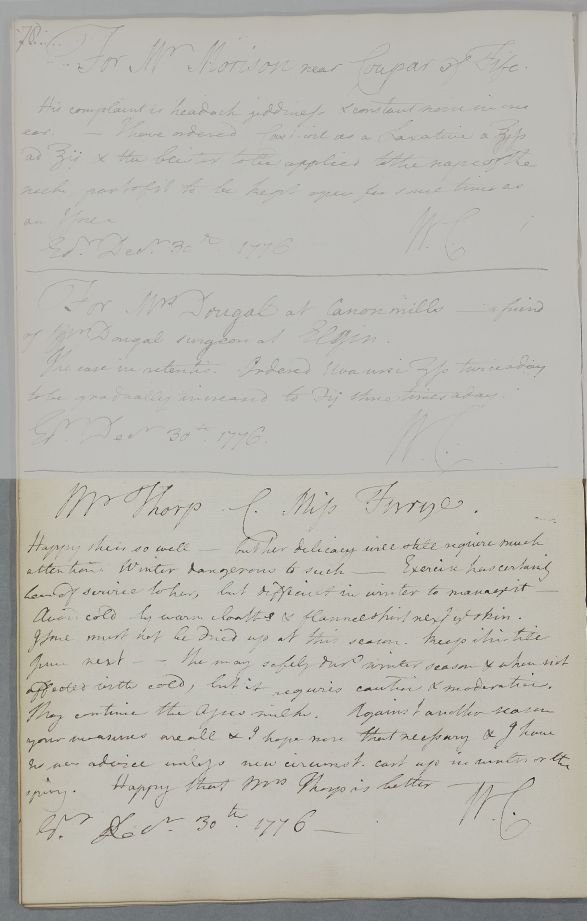 For Mr Morison near Coupar of Fife.
His complaint is headach giddiness & constant noise in one
ear. — I have ordered as a Laxative a ℥ss
ad ℥ij & the blister to be applied to the nape of the
neck part of it to be kept open for some time as
an Issue
Edr. Decr. 30th 1776 W.C.
For Mrs Dougal at Canonmills — a friend
of Mr Dougal surgeon at Elgin.
The case in retentis. Ordered Uva ursi ʒss twice a day
to be gradually increased to three times a day.
Edr. Decr. 30th 1776. W.C.
Mr Thorp C. Miss Furye.
Happy she is so well — but her delicacy will still require much
attention Winter dangerous to such — Exercise has certainly
been of service to her, but difficult in winter to manage it —
Avoid cold by warm cloaths & flannel shirt next ye skin.
Issue must not be dried up at this season. keep it in till
June next — She may safely durg winter season & when not
affected with cold, but it requires caution & moderation.
May continue the Asses milk. Against another season
your measures are all & I hope more than necessary & I have
no new advice unless new circumst. cast up in winter or the
spring. Happy that Mrs Thorp is better — W.C.
Edr Decr. 30th 1776 —